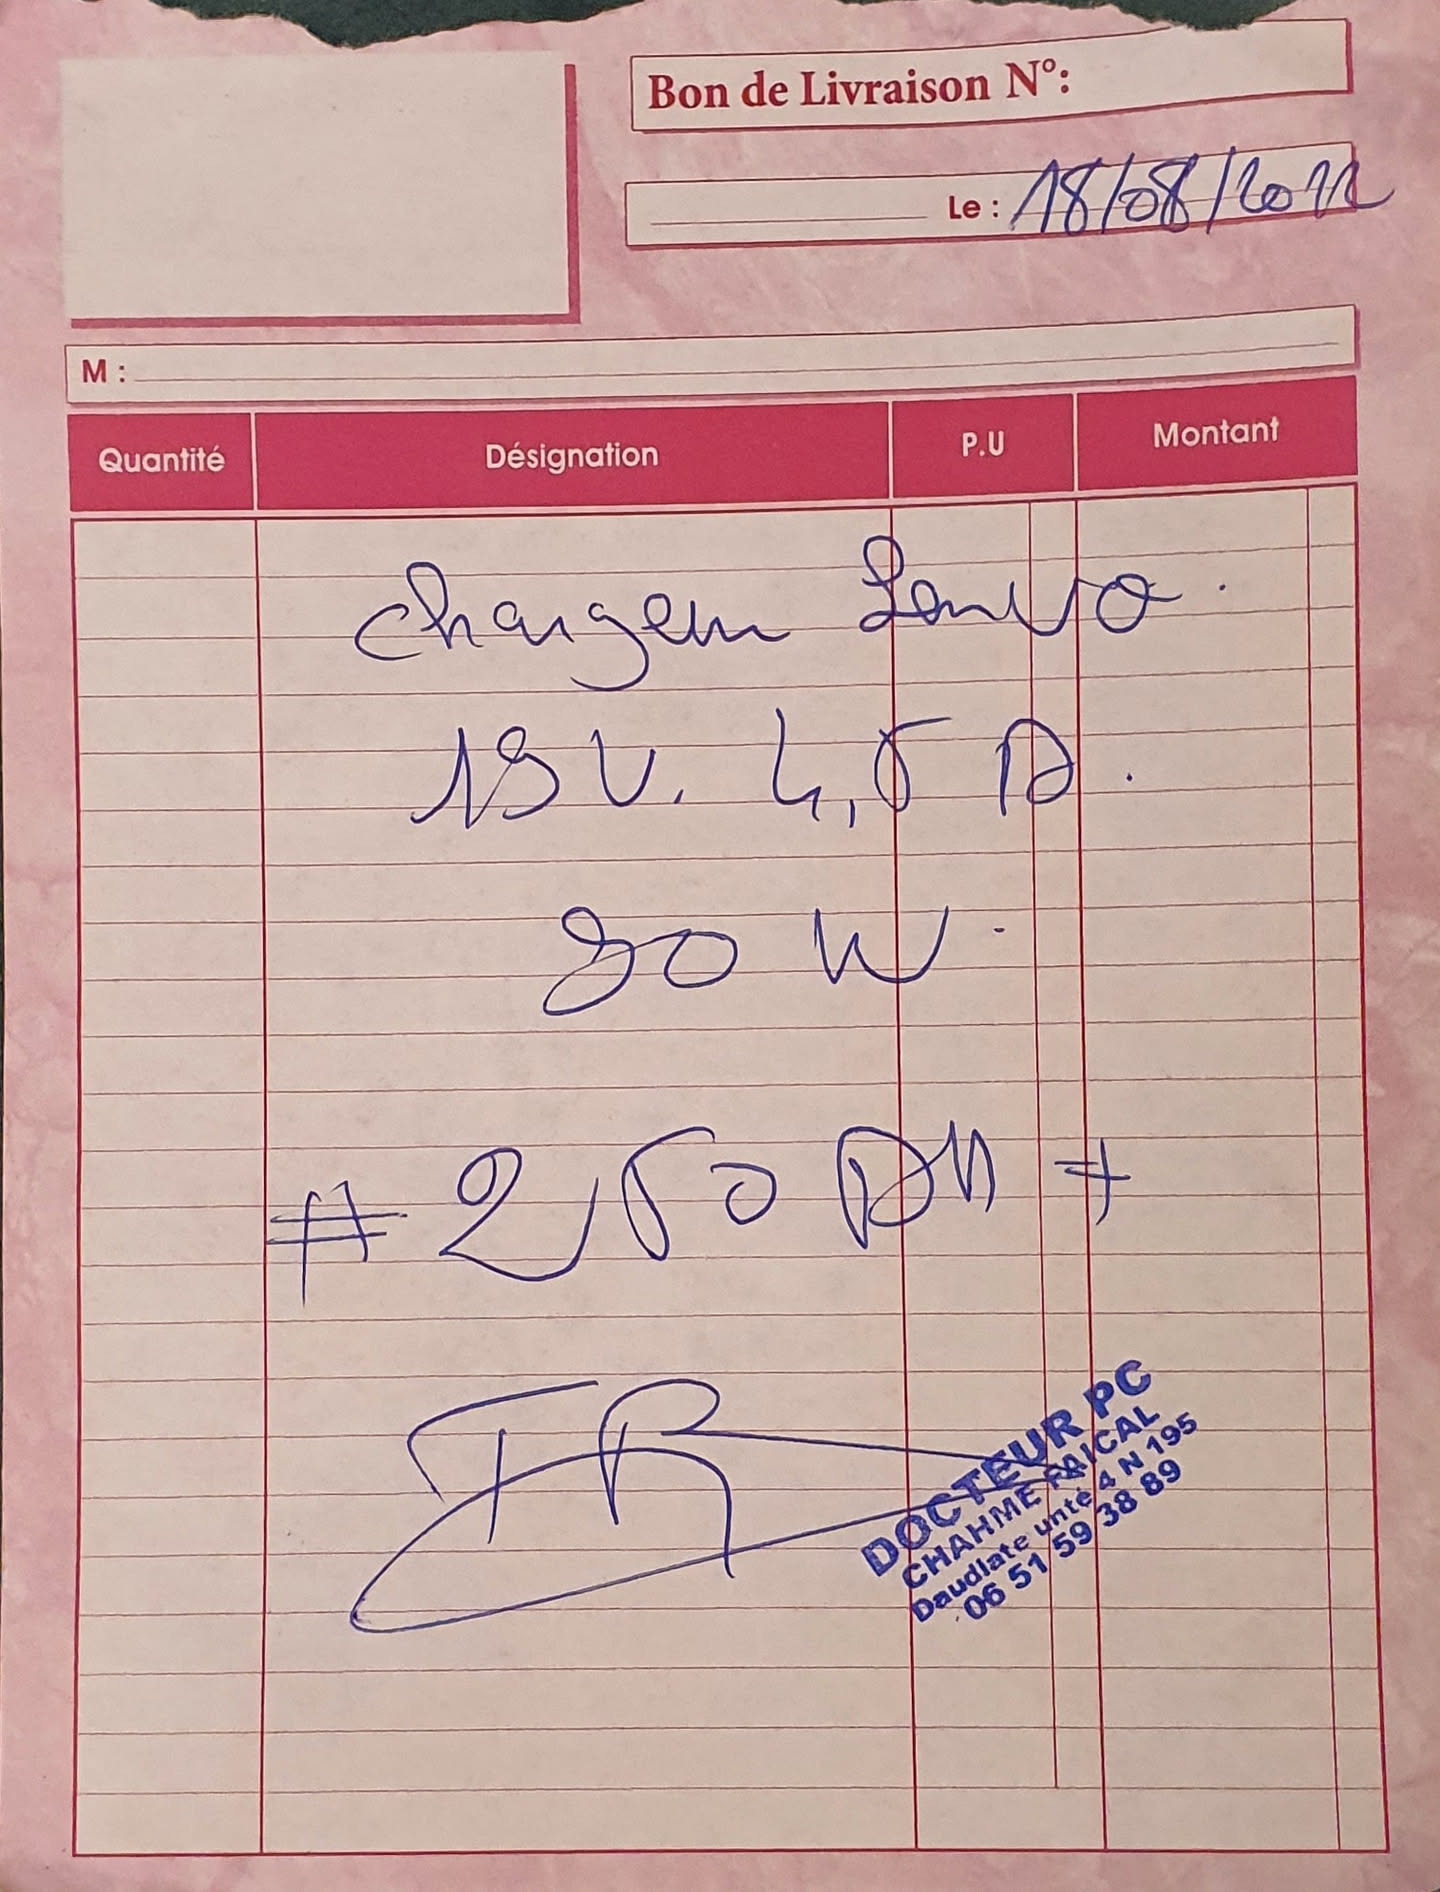 Bon de Livraison N°:
Le : 18/08/2022
M :
Quantité Désignation P.U Montant
Chargeur Lenvo.
19 V. 4,5 A.
90 W.
# 250 DH #
DOCTEUR PC
CHAHME FAICAL
Daudlate unté 4 N 195
06 51 59 38 89